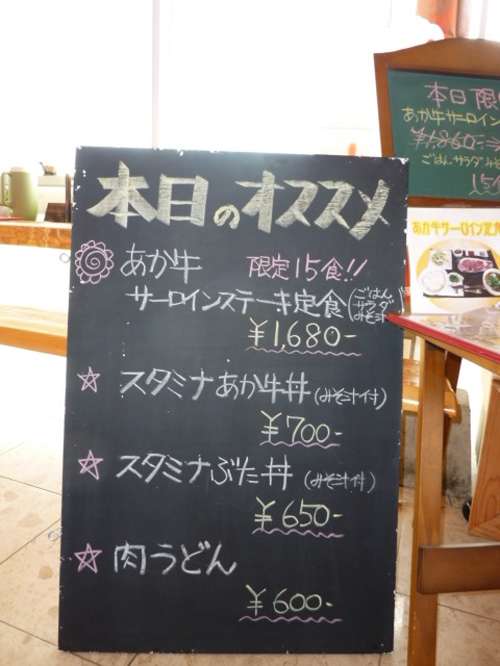 本日のオススメ
あか牛 限定15食!!
サーロインステーキ定食(ごはん サラダ みそ汁)
¥1,680-
スタミナあか牛丼(みそ汁付)
¥700-
スタミナぶた丼(みそ汁付)
¥650-
肉うどん
¥600-
本日限
あか牛サーロイン
ごはん サラダ
あか牛サーロイン定食